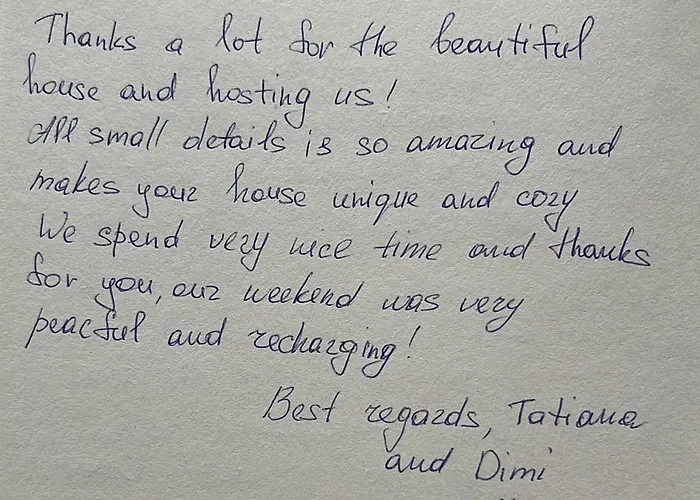 Thanks a lot for the beautiful
house and hosting us!
All small details is so amazing and
makes your house unique and cozy
We spend very nice time and thanks
for you, our weekend was very
peacful and recharging!
Best regards, Tatiana
and Dimi